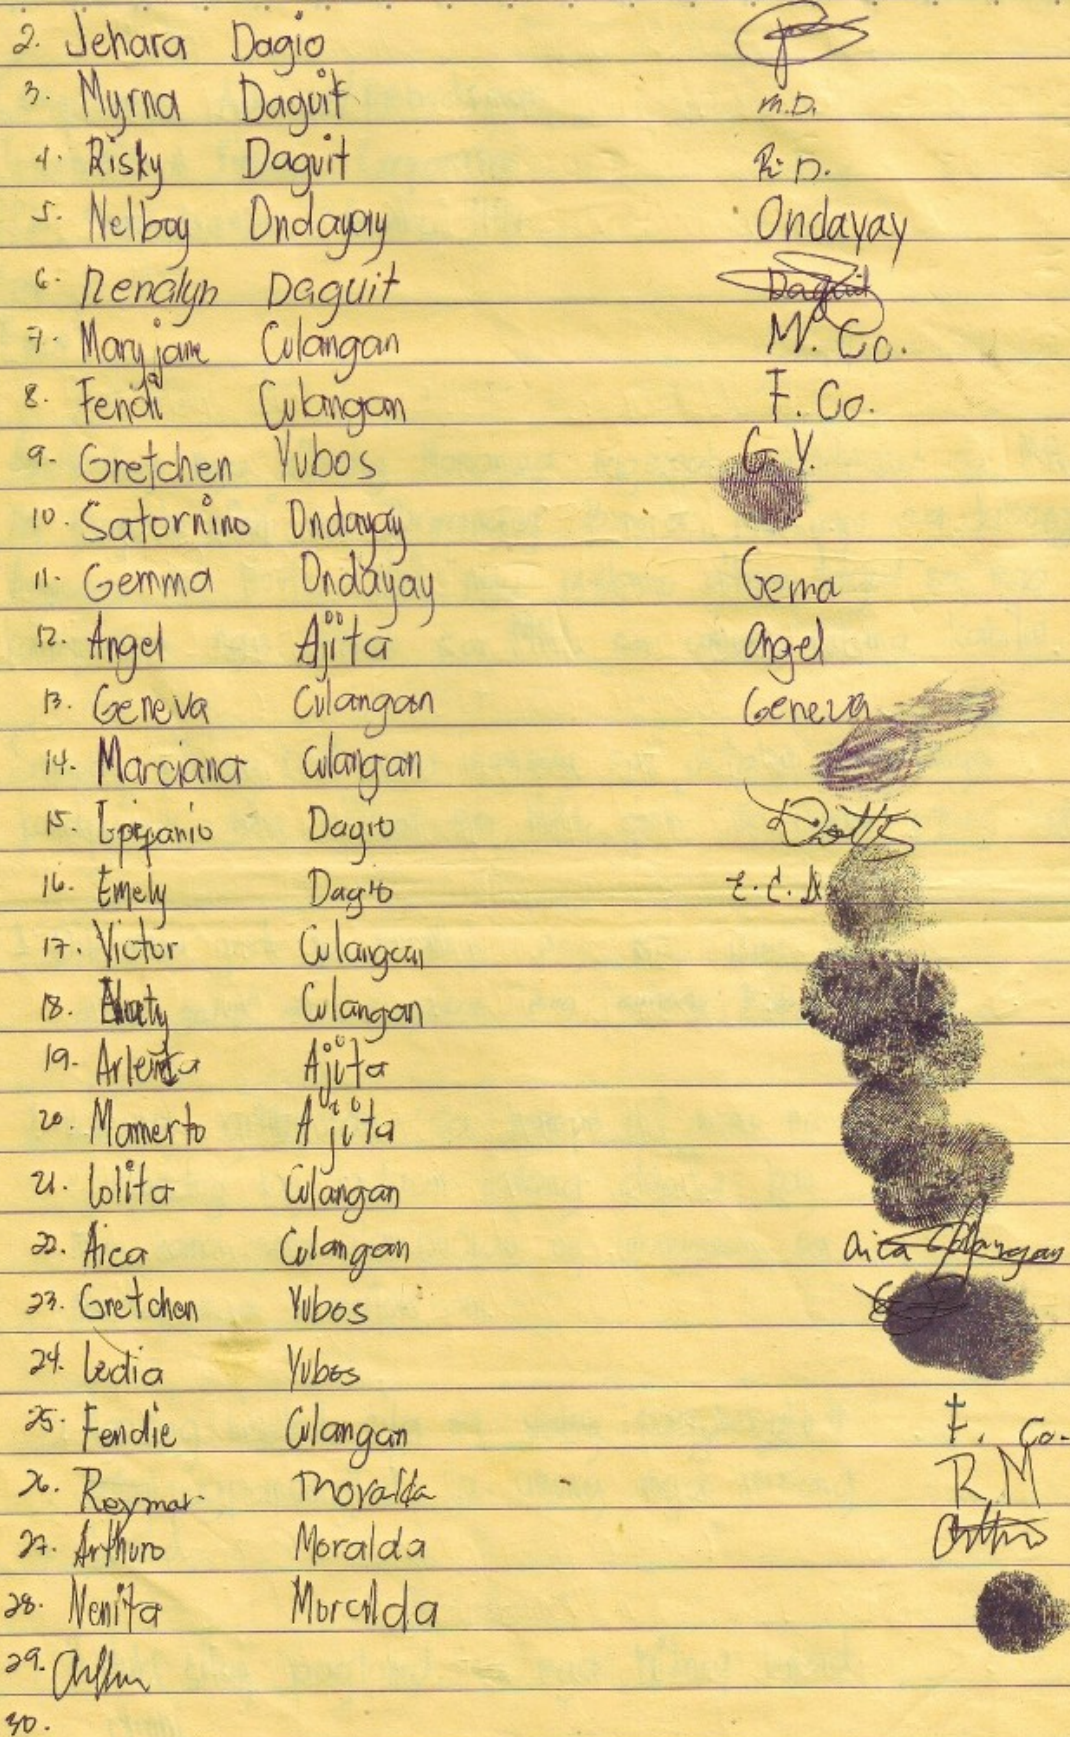 2. Jehara Dagio
3. Myrna Daguit m.D.
4. Risky Daguit R. D.
5. Nelboy Ondayay Ondayay
6. Renalyn Daguit Daguit
7. Mary jane Culangan M. Co.
8. Fendi Culangan F. Co.
9. Gretchen Yubos G. Y.
10. Satornino Ondayay
11. Gemma Ondayay Gema
12. Angel Ajita angel
13. Geneva Culangan Geneva
14. Marciana Culangan
15. Epipanio Dagio
16. Emely Dagio E. C. D
17. Victor Culangan
18. Culangan
19. Arlenta Ajita
20. Mamerto Ajita
21. Lolita Culangan
22. Aica Culangan Aica Culangan
23. Gretchen Yubos
24. Ledia Yubos
25. Fendie Culangan F. Co.
26. Reymar Moralda R. M
27. Arthuro Moralda
28. Nenita Moralda
29.
30.